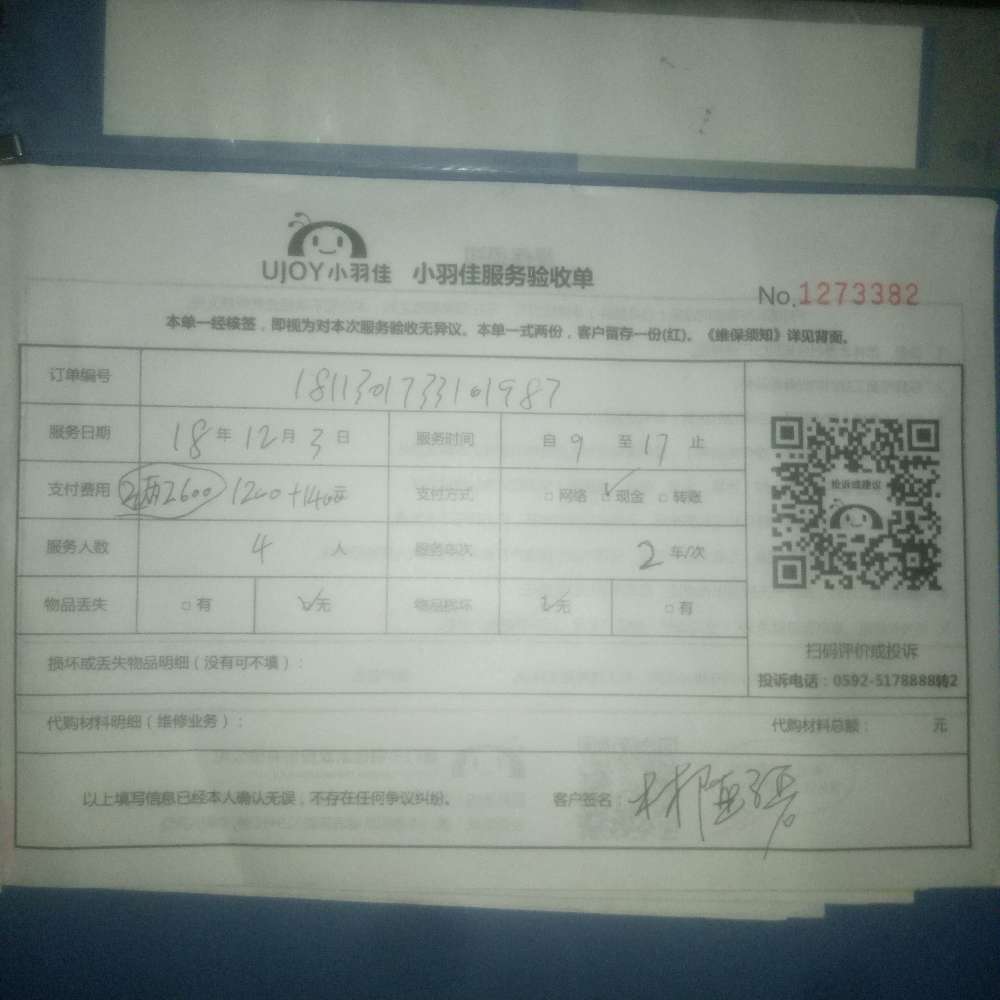 UJOY小羽佳 小羽佳服务验收单
No.1273382
本单一经核签，即视为对本次服务验收无异议。本单一式两份，客户留存一份(红)。《维保须知》详见背面。
订单编号 1811301733101987
服务日期 18年12月3日 服务时间 自9至17止
支付费用 2600 1200+1400元 支付方式 □网络 ☑现金 □转账
服务人数 4人 服务年次 2年/次
物品丢失 □有 ☑无 物品损坏 ☑无 □有
投诉或建议
扫码评价或投诉
投诉电话：0592-5178888转2
损坏或丢失物品明细（没有可不填）：
代购材料明细（维修业务）： 代购材料总额： 元
以上填写信息已经本人确认无误，不存在任何争议纠纷。 客户签名：